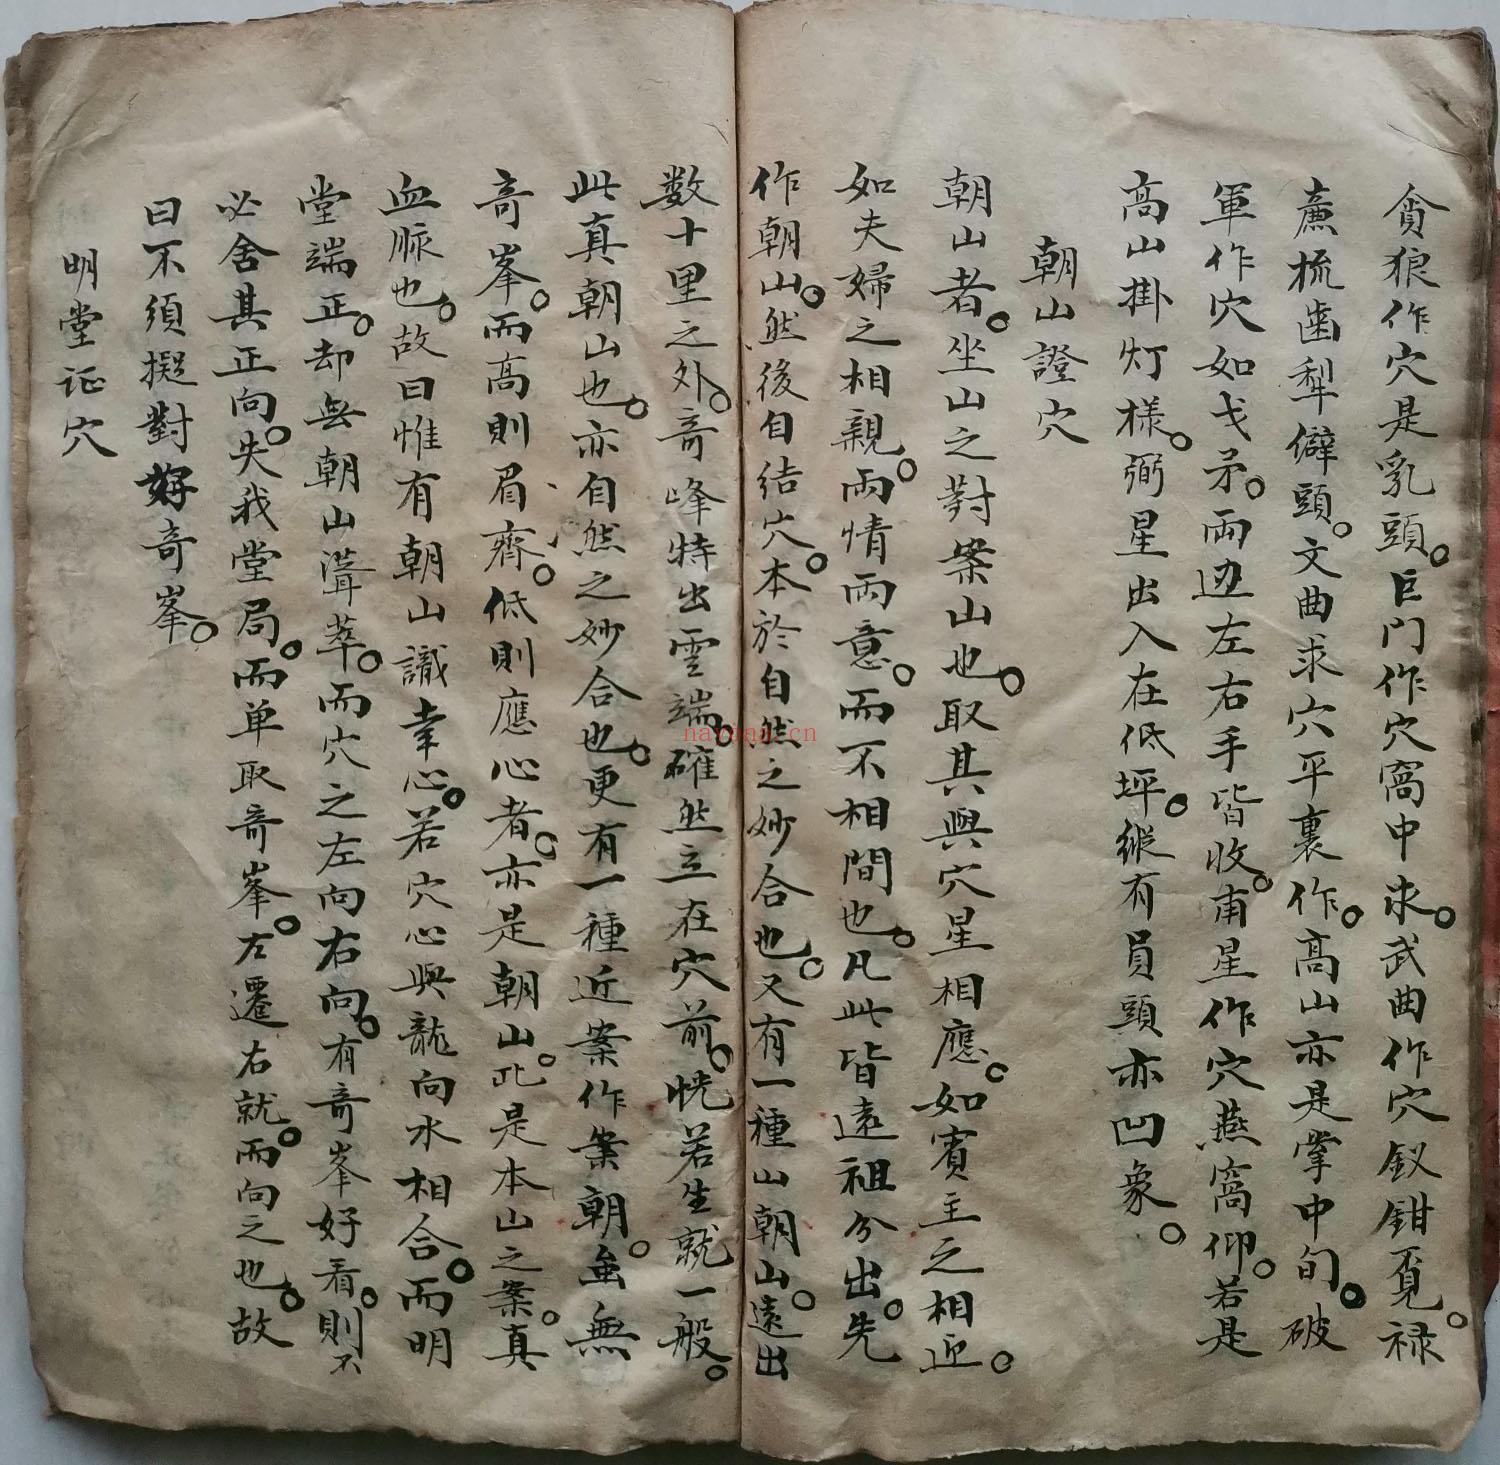 貪狼作穴是乳頭。巨門作穴窩中求。武曲作穴釵鉗覓。禄
廉梳齒犁鐴頭。文曲求穴平裏作。高山亦是掌中旬。破
軍作穴如戈矛。両边左右手皆收。甫星作穴燕窩仰。若是
高山掛灯樣。弼星出入在低坪。縱有員頭亦凹象。
朝山證穴
朝山者。坐山之對案山也。取其與穴星相應。如賓主之相迎。
如夫婦之相親。両情両意。而不相間也。凡此皆遠祖分出。先
作朝山。然後自结穴。本於自然之妙合也。又有一種山朝山。遠出
数十里之外。竒峰特出雲端。確然立在穴前。恍若生就一般。
此真朝山也。亦自然之妙合也。更有一種近案作案朝。虽無
竒峯。而高則眉齊。低則應心者。亦是朝山。此是本山之案。真
血脈也。故曰惟有朝山識幸心。若穴心與龍向水相合。而明
堂端正。却無朝山聳萃。而穴之左向右向。有竒峯好看。則不
必舍其正向。失我堂局。而单取竒峯。左遷右就。而向之也。故
曰不須擬對好竒峯。
明堂证穴
nayona.cn